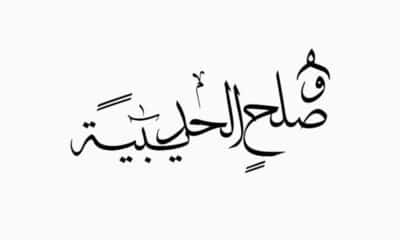 صلح الحديبية